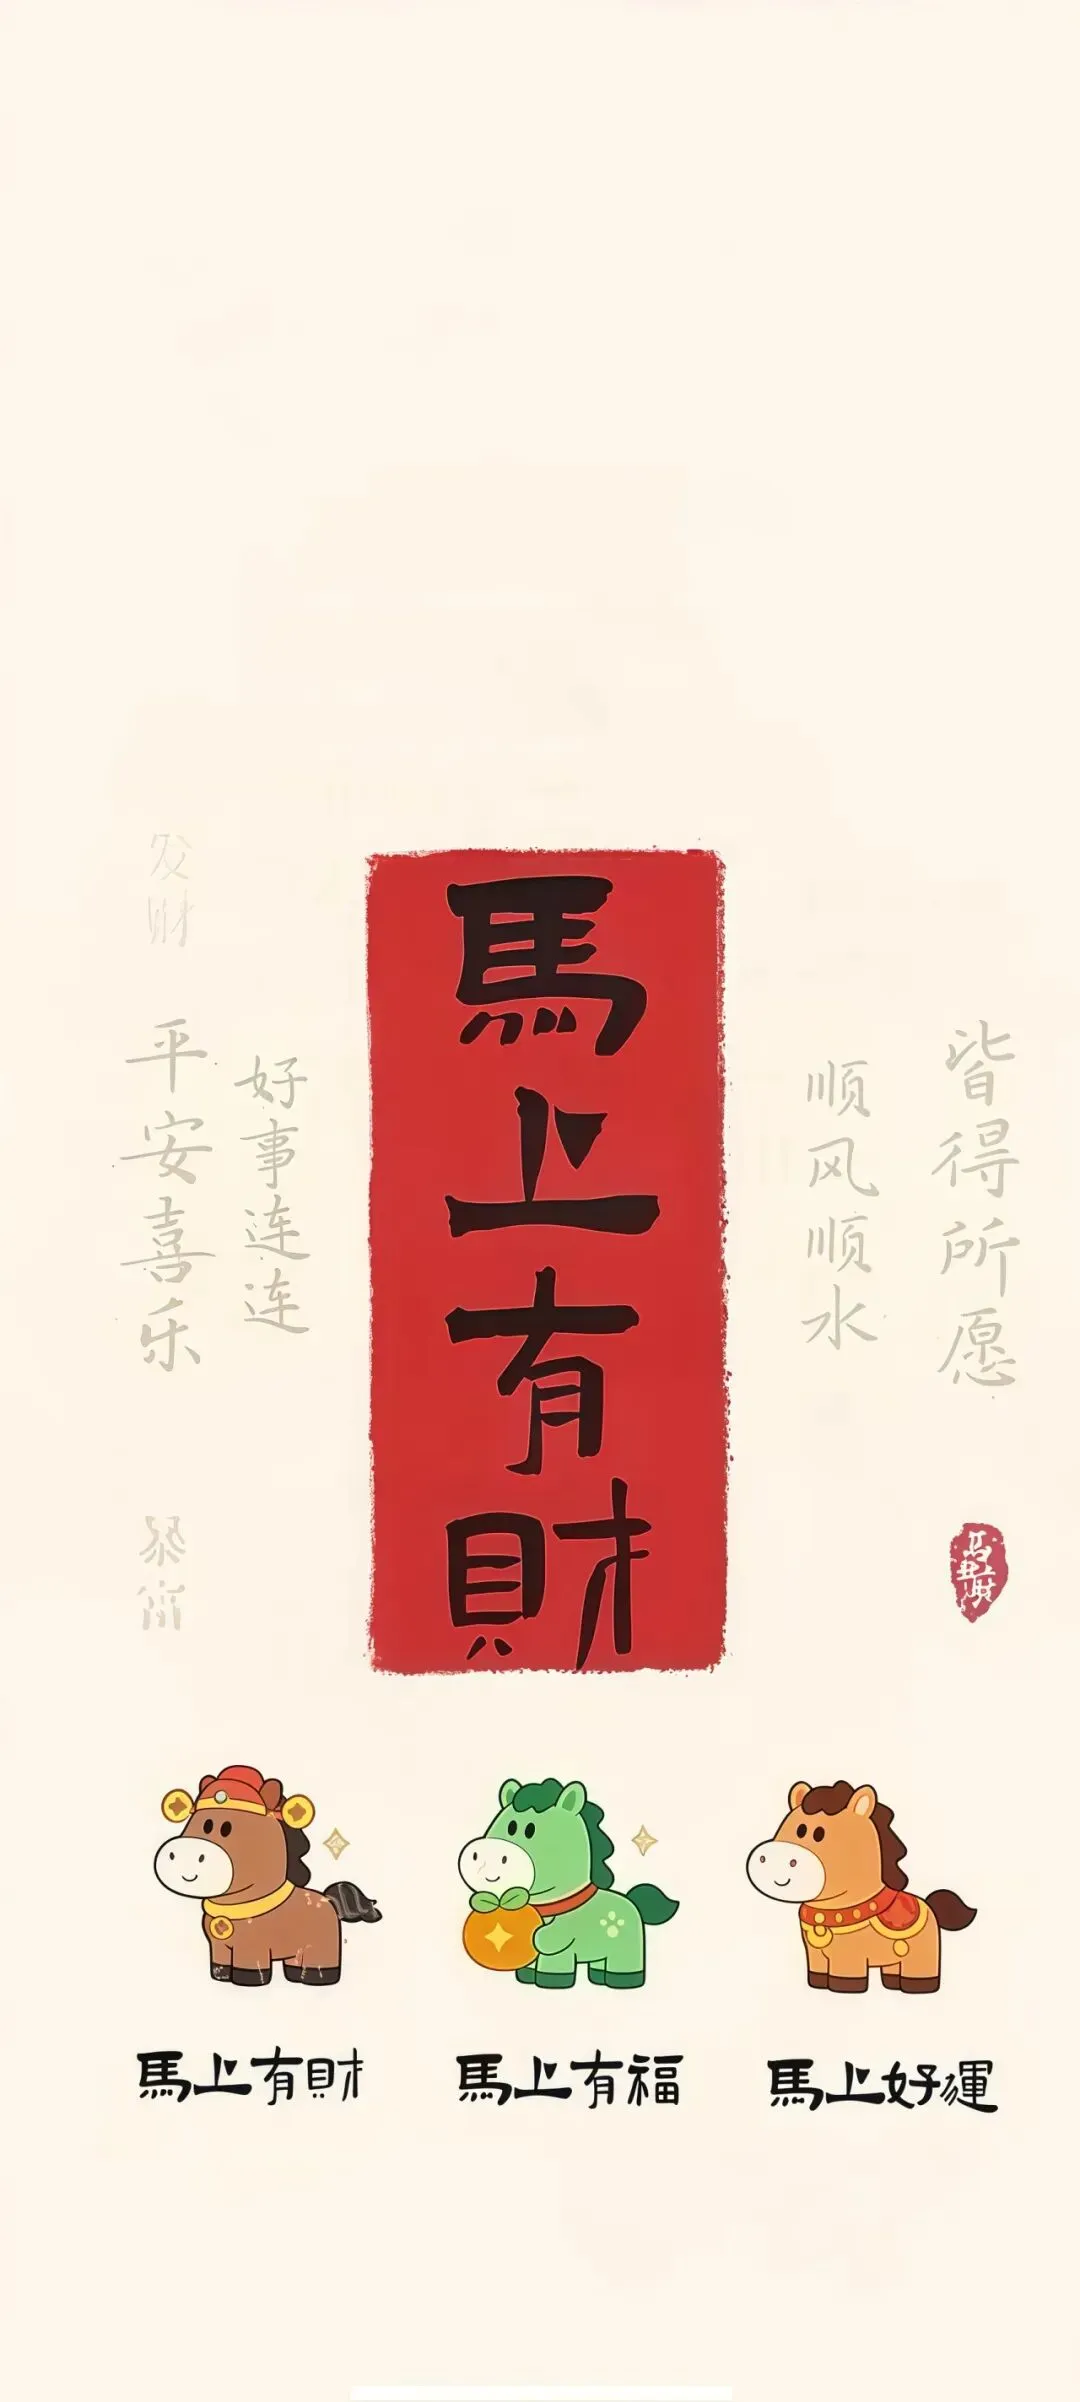 发财
平安喜乐
好事连连
馬上有財
顺风顺水
皆得所愿
馬上有財
馬上有福
馬上好運